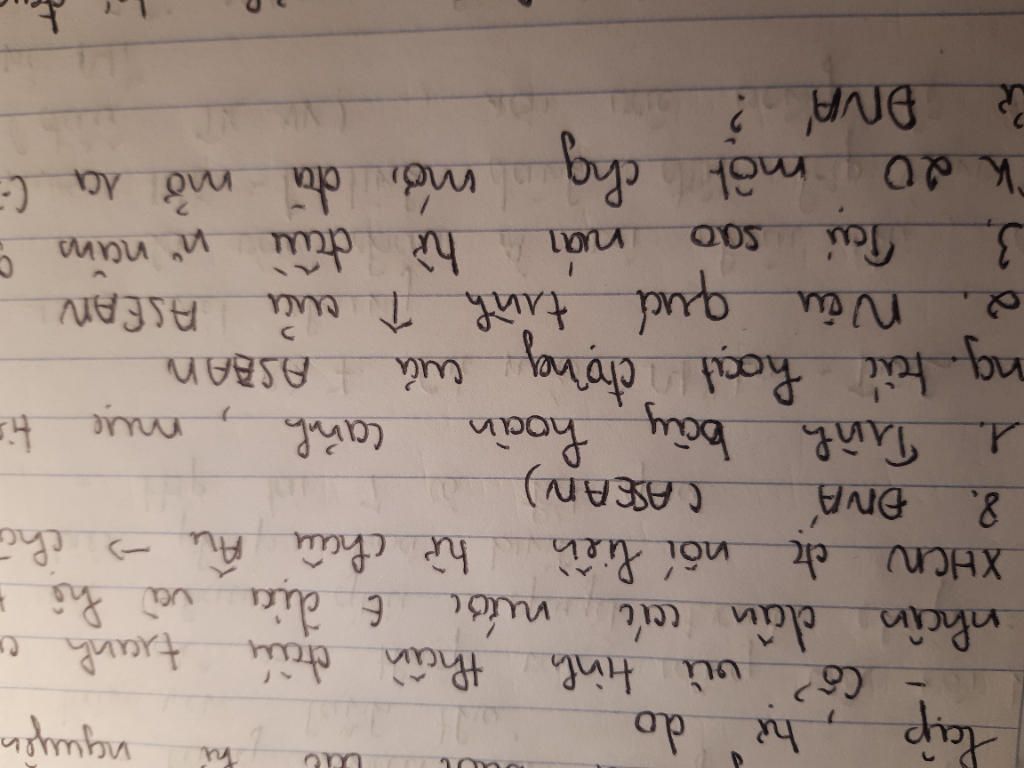 nguyên
lập, tự do
- Cổ vũ tinh thần đấu tranh
nhân dân các nước € địa và hệ
XHCN đc nối liền từ châu Âu →
8. ĐNÁ (ASEAN)
1. Trình bày hoàn cảnh, mục
ng. tắc hoạt động của ASEAN
2. Nêu quá trình ↑ của ASEAN
3. Tại sao nói từ đầu n~ năm
tk 20 một chg mới đã mở ra
ĐNÁ?